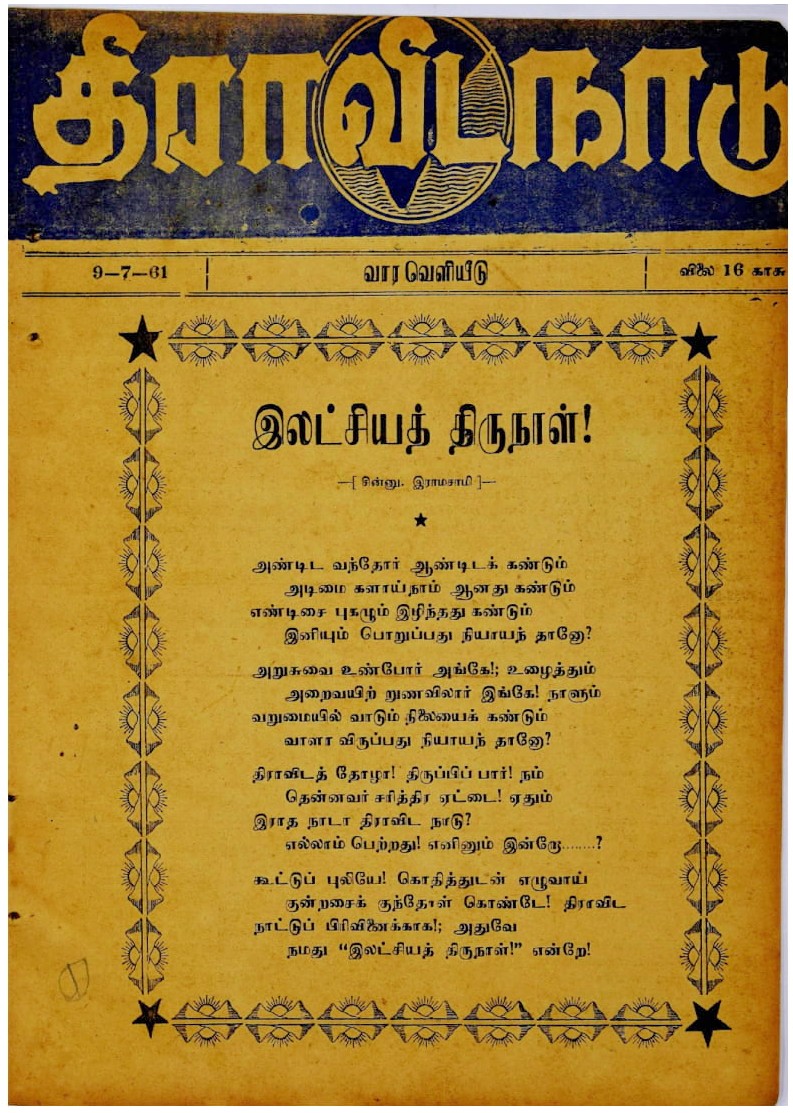 திராவிடநாடு
9—7—61
வார வெளியீடு
விலை 16 காசு
இலட்சியத் திருநாள்!
—[ சின்னு. இராமசாமி ]—
அண்டிட வந்தோர் ஆண்டிடக் கண்டும்
அடிமை களாய்நாம் ஆனது கண்டும்
எண்டிசை புகழும் இழிந்தது கண்டும்
இனியும் பொறுப்பது நியாயந் தானே?
அறுசுவை உண்போர் அங்கே!; உழைத்தும்
அறைவயிற் றுணவிலார் இங்கே! நாளும்
வறுமையில் வாடும் நிலையைக் கண்டும்
வாளா விருப்பது நியாயந் தானே?
திராவிடத் தோழா! திருப்பிப் பார்! நம்
தென்னவர் சரித்திர ஏட்டை! ஏதும்
இராத நாடா திராவிட நாடு?
எல்லாம் பெற்றது! எனினும் இன்றோ........?
கூட்டுப் புலியே! கொதித்துடன் எழுவாய்
குன்றசைக் குந்தோள் கொண்டே! திராவிட
நாட்டுப் பிரிவினைக்காக!; அதுவே
நமது “இலட்சியத் திருநாள்!” என்றே!